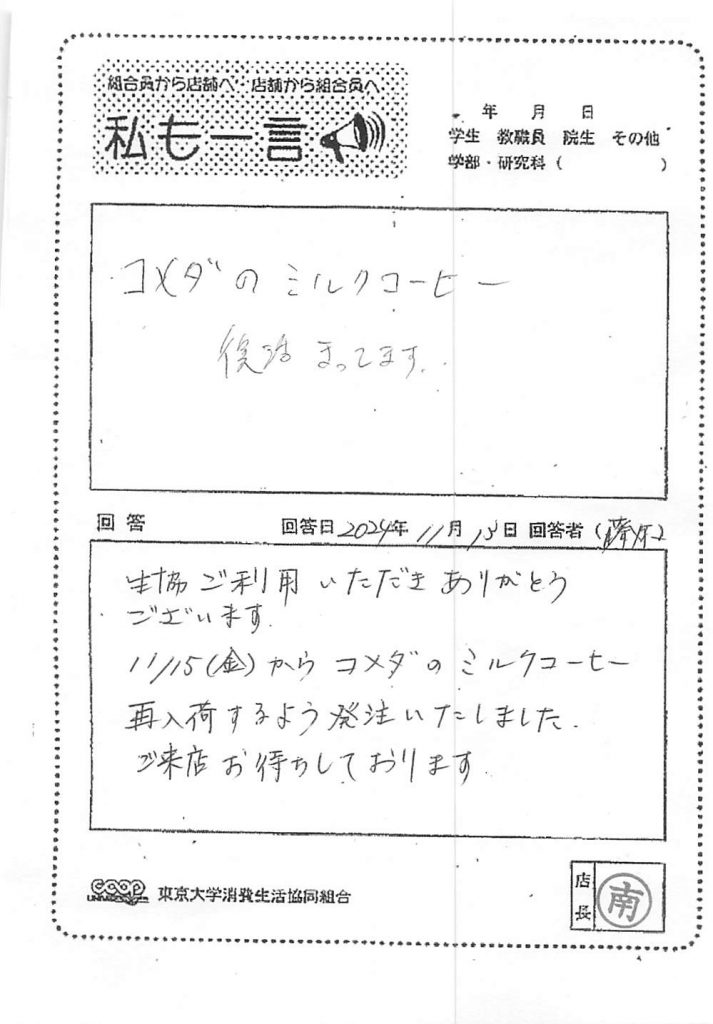 組合員から店舗へ・店舗から組合員へ
私も一言
年 月 日
学生 教職員 院生 その他
学部・研究科（ ）
コメダの ミルクコーヒー
復活 まってます.
回答 回答日 2024年 11月 13日 回答者（ ）
生協 ご利用 いただき ありがとう
ございます.
11/15(金)から コメダの ミルクコーヒー
再入荷するよう発注いたしました.
ご来店お待ちしております.
coop 東京大学消費生活協同組合
店長
南